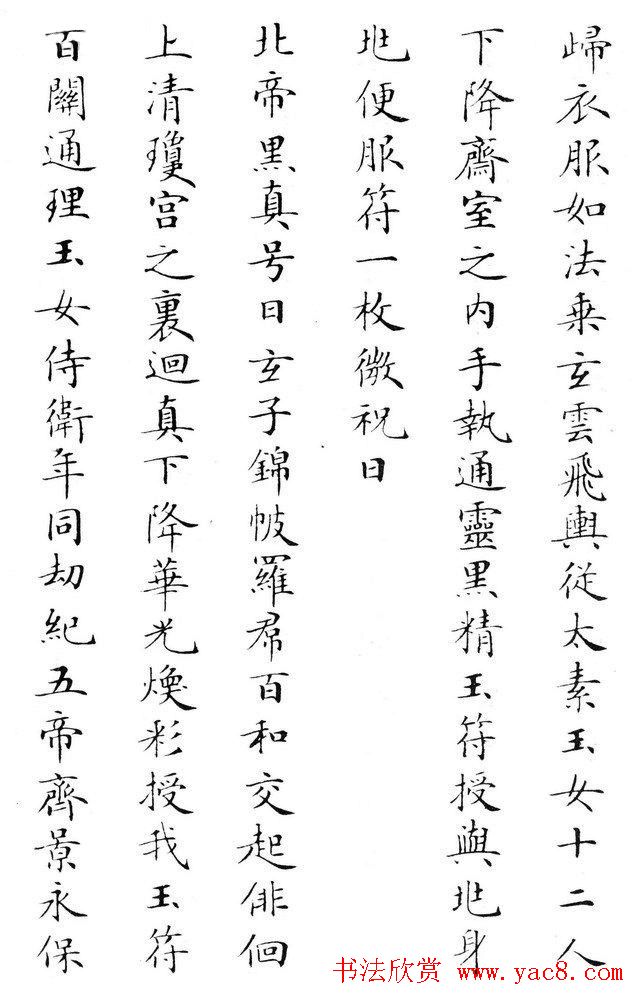 歸衣服如法乗玄雲飛輿從太素玉女十二人
下降齋室之内手執通靈黒精玉符授與兆身
兆便服符一枚微祝曰
北帝黒真号曰玄子錦帔羅帬百和交起俳佪
上清瓊宫之裏迴真下降華光煥彩授我玉符
百關通理玉女侍衛年同劫紀五帝齊景永保
书法欣赏 www.yac8.com